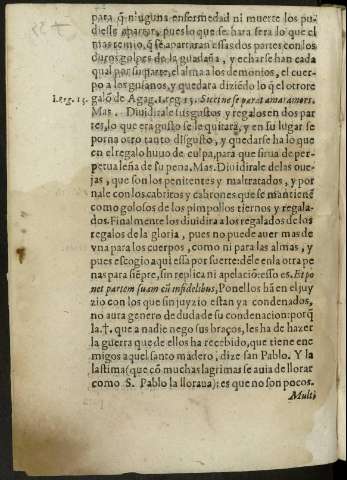 para q̃ ninguna enfermedad ni muerte los pu-
diesse apartar, pues lo que se hara sera lo que el
mas temio, q̃ se apartaran essas dos partes con los
duros golpes de la guadaña, y echarse han cada
qual por su parte, el alma a los demonios, el cuer-
po a los gusanos, y quedara diuidido lo q̃ el otro re
1. reg. 15. galõ de Agag. 1. reg. 15. Siccine separat amara mors.
Mas. Diuidirale sus gustos y regalos en dos par
tes, lo que era gusto se le quitará, y en su lugar se
porna otro tanto disgusto, y quedarse ha lo que
en el regalo huuo de culpa, para que sirua de per-
petua leña de su pena. Mas. Diuidirale de las oue-
jas, que son los penitentes y maltratados, y por
nale con los cabritos y cabrones que se mantienẽ
como golosos de los pimpollos tiernos y regala-
dos. Finalmente los diuidira a los regalados de los
regalos de la gloria, pues no puede auer mas de
vna para los cuerpos, como ni para las almas, y
pues escogio aqui essa por suerte: dẽle en la otra pe
nas para siẽpre, sin replica ni apelaciõ: esso es. Et po
net partem suam cũ infidelibus, Ponellos hã en el juy
zio con los que sin juyzio estan ya condenados,
no aura genero de duda de su condenacion: porq̃
la .†. que a nadie nego sus braços, les ha de hazer
la guerra que de ellos ha recebido, que tiene ene
migos aquel santo madero, dize san Pablo. Y la
lastima (que cõ muchas lagrimas se auia de llorar
como S. Pablo la lloraua) es que no son pocos.
Multi,